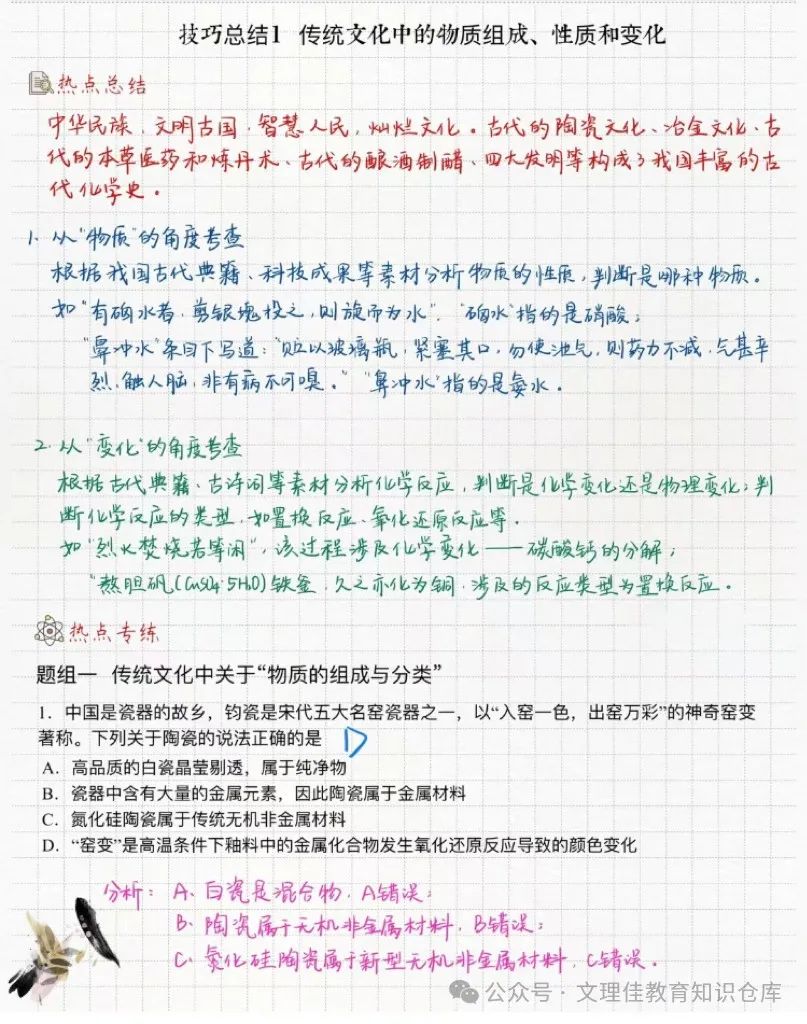 技巧总结1 传统文化中的物质组成、性质和变化
热点总结
中华民族,文明古国,智慧人民,灿烂文化。古代的陶瓷文化、冶金文化、古
代的本草医药和炼丹术、古代的酿酒制醋、四大发明等构成了我国丰富的古
代化学史。
1. 从“物质”的角度考查
根据我国古代典籍、科技成果等素材分析物质的性质,判断是哪种物质。
如“有硇水者,剪银塊投之,则旋而为水”,“硇水”指的是硝酸;
“鼻冲水”条目下写道:“贮以玻璃瓶,紧塞其口,勿使泄气,则药力不减,气甚辛
烈,触人脑,非有病不可嗅。”“鼻冲水”指的是氨水。
2. 从“变化”的角度考查
根据古代典籍、古诗词等素材分析化学反应,判断是化学变化还是物理变化;判
断化学反应的类型,如置换反应、氧化还原反应等。
如“烈火焚烧若等闲”,该过程涉及化学变化——碳酸钙的分解;
“熬胆矾(CuSO4·5H2O)铁釜,久之亦化为铜,涉及的反应类型为置换反应。
热点专练
题组一 传统文化中关于“物质的组成与分类”
1. 中国是瓷器的故乡,钧瓷是宋代五大名窑瓷器之一,以“入窑一色,出窑万彩”的神奇窑变
著称。下列关于陶瓷的说法正确的是 D
A. 高品质的白瓷晶莹剔透,属于纯净物
B. 瓷器中含有大量的金属元素,因此陶瓷属于金属材料
C. 氮化硅陶瓷属于传统无机非金属材料
D. “窑变”是高温条件下釉料中的金属化合物发生氧化还原反应导致的颜色变化
分析: A、白瓷是混合物,A错误;
B、陶瓷属于无机非金属材料,B错误;
C、氮化硅陶瓷属于新型无机非金属材料,C错误。
公众号·文理佳教育知识仓库